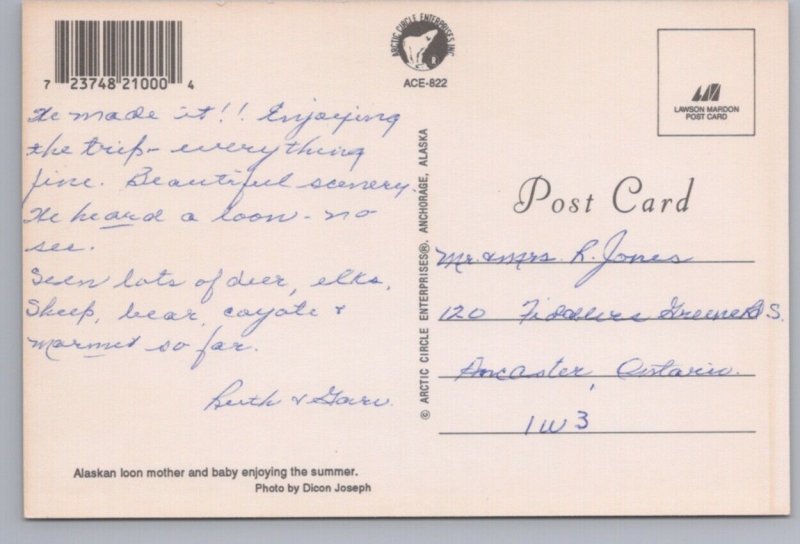 7 23748 21000 4
ARCTIC CIRCLE ENTERPRISES INC.
R
ACE-822
LAWSON MARDON
POST CARD
We made it!! Enjoying
the trip - everything
fine. Beautiful scenery.
We heard a loon - no
see.
Seen lots of deer, elks,
Sheep, bear, coyote &
marmet so far.
Ruth & Garv.
Alaskan loon mother and baby enjoying the summer.
Photo by Dicon Joseph
© ARCTIC CIRCLE ENTERPRISES®, ANCHORAGE, ALASKA
Post Card
Mr. & Mrs R. Jones
120 Fiddlers Green Rd S.
Ancaster, Ontario.
1W3